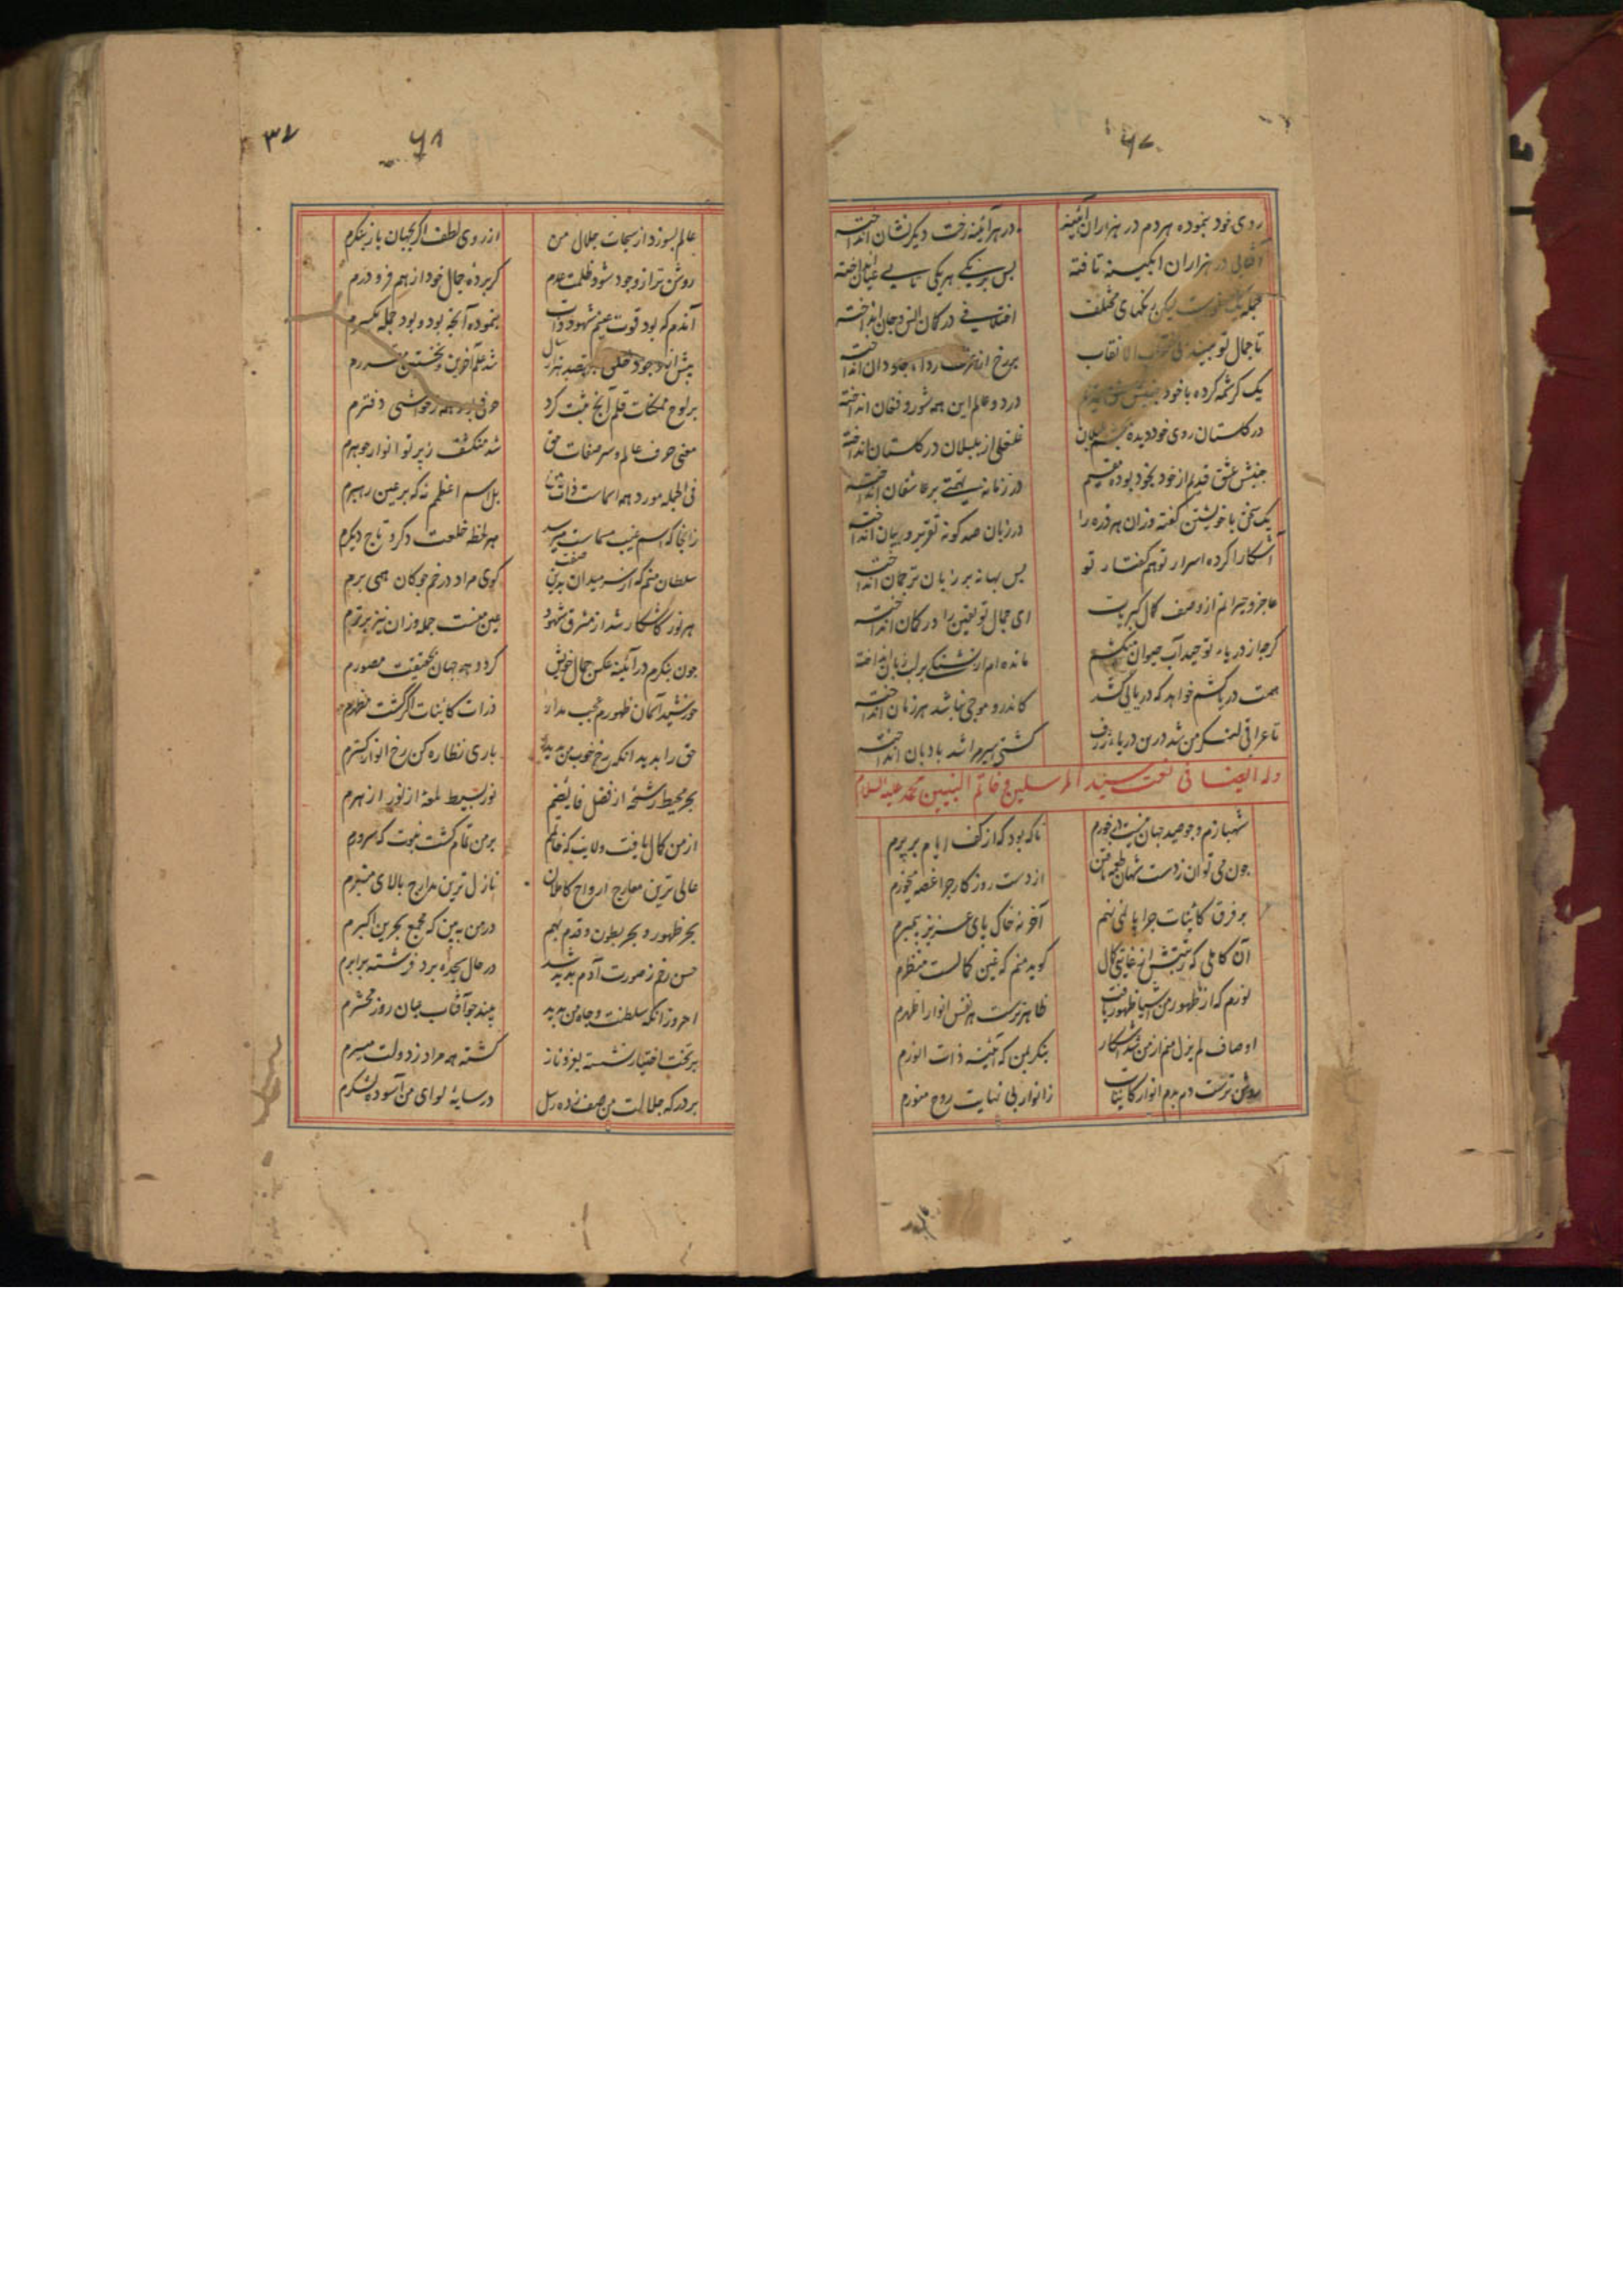 ۶۷
روی خود بنموده هر دم در هزاران آئینه در هر آئینه رخت دیکر نشان انداخته
آفتابی در هزاران ابکینه تافته بس برنیکی هر یکی تابی عیان انداخته
جمله یک نورست لیکن رنکهای مختلف اختلافی در کمان انس و جان انداخته
تا جمال تو نبیند بی نقاب بر رخ از عزت ردا جاودان انداخته
یک کرشمه کرده با خود جنبش عشق قدیم در دو عالم این همه شور و فغان انداخته
در کلستان روی خود دیده بچشم بلبلان غلغلی از بلبلان در کلستان انداخته
جنبش عشق قدیم از خود بخود بوده مقیم در زمانه تهمتی بر عاشقان انداخته
یک سخن با خویشتن کفته وزان هر ذره را در زبان صد کونه تقریر و بیان انداخته
آشکارا کرده اسرار تو هم کفتار تو بس بهانه بر زبان ترجمان انداخته
عاجز و حیرانم از وصف کمال کبریات ای جمال تو یقین را در کمان انداخته
کرچه از دریاء توحید آب حیوان میکشم مانده ام از تشنکی بر لب زبان انداخته
همت دریا کشم خواهد که دریایی کشد کاندرو موجی نباشد هر زمان انداخته
تا عراقی لنکر من شد درین دریاء ژرف کشتی سیرم اشد بادبان انداخته
وله ایضا فی نعت سید المرسلین و خاتم النبیین محمد علیه السلام
شهبازم و جو صید جهان نیست در خورم ناکه بود که از کف ایام بر برم
چون می توان ز دست شهان طعمه یافتن از دست روزکار چرا غصه میخورم
بر فرق کائنات چرا پا نمی نهم آخر نه خاک پای عزیز پیمبرم
آن کاملی که رتبتش از غایت کمال کوید منم که عین کمالست منظرم
نورم که از ظهور من اشیا ظهور یافت ظاهرترست هر نفس انوار اظهرم
اوصاف لم یزل منم از من شد آشکار بنکر بمن که آئینه ذات انورم
روشن ترست دم بدم انوار کاینات ز انوار بی نهایت روح منورم
۶۸
۳۷
عالم بسوزد از سبحات جلال من از روی لطف اکر بجهان باز ننکرم
روشن تر از وجود شود ظلمت عدم کر پرده جمال خود از هم فرو درم
آندم که بود قوت عینم شهود ذات بنموده آنچه بود و بود جمله یکسرم
بیش از وجود خلق بهفصد هزار سال شد علم آخرین و نخستین مقررم
بر لوح ممکنات قلم آنچ ثبت کرد حرفی بود همه ز حواشی دفترم
معنی حرف عالم و سر صفات حق شد منکشف ز پرتو انوار جوهرم
فی الجمله مورد همه اسماست ذات من بل اسم اعظمم نه که بر عین رهبرم
زانجا که اسم عین مسماست میرسد هر لحظه خلعت دکر و تاج دیکرم
سلطان منم که از سر میدان بدین صفت کوی مراد در خم چوکان همی برم
هر نور کاشکار شد از مشرق شهود عین منست جمله وزان نیز برترم
جون بنکرم در آئینه عکس جمال خویش کردد همه جهان بحقیقت مصورم
خورشید آسمان ظهورم عجب مدار ذرات کائنات اکر کشت مظهرم
حق را بدید انکه رخ خوب من بدید باری نظاره کن رخ انوار کسترم
بحر محیط رشحه از فضل فایضم نور بسیط لمعه از نور ازهرم
از من کمال یافت ولایت که خاتمم بر من تمام کشت نبوت که سرورم
عالی ترین معارج ارواح کاملان نازل ترین مدارج بالای منبرم
بحر ظهور و بحر بطون و قدم بهم در من ببین که مجمع بحرین اکبرم
حسن رخم ز صورت آدم پدید شد در حال سجده برد فرشته برابرم
امروز انکه سلطنت و جاه من بدید بیند جو آفتاب عیان روز محشرم
بر تخت اختیار نشسته بعز و ناز کشته همه مراد ز دولت میسرم
بر درکه جلالت من صف زده رسل در سایهٔ لوای من آسوده لشکرم